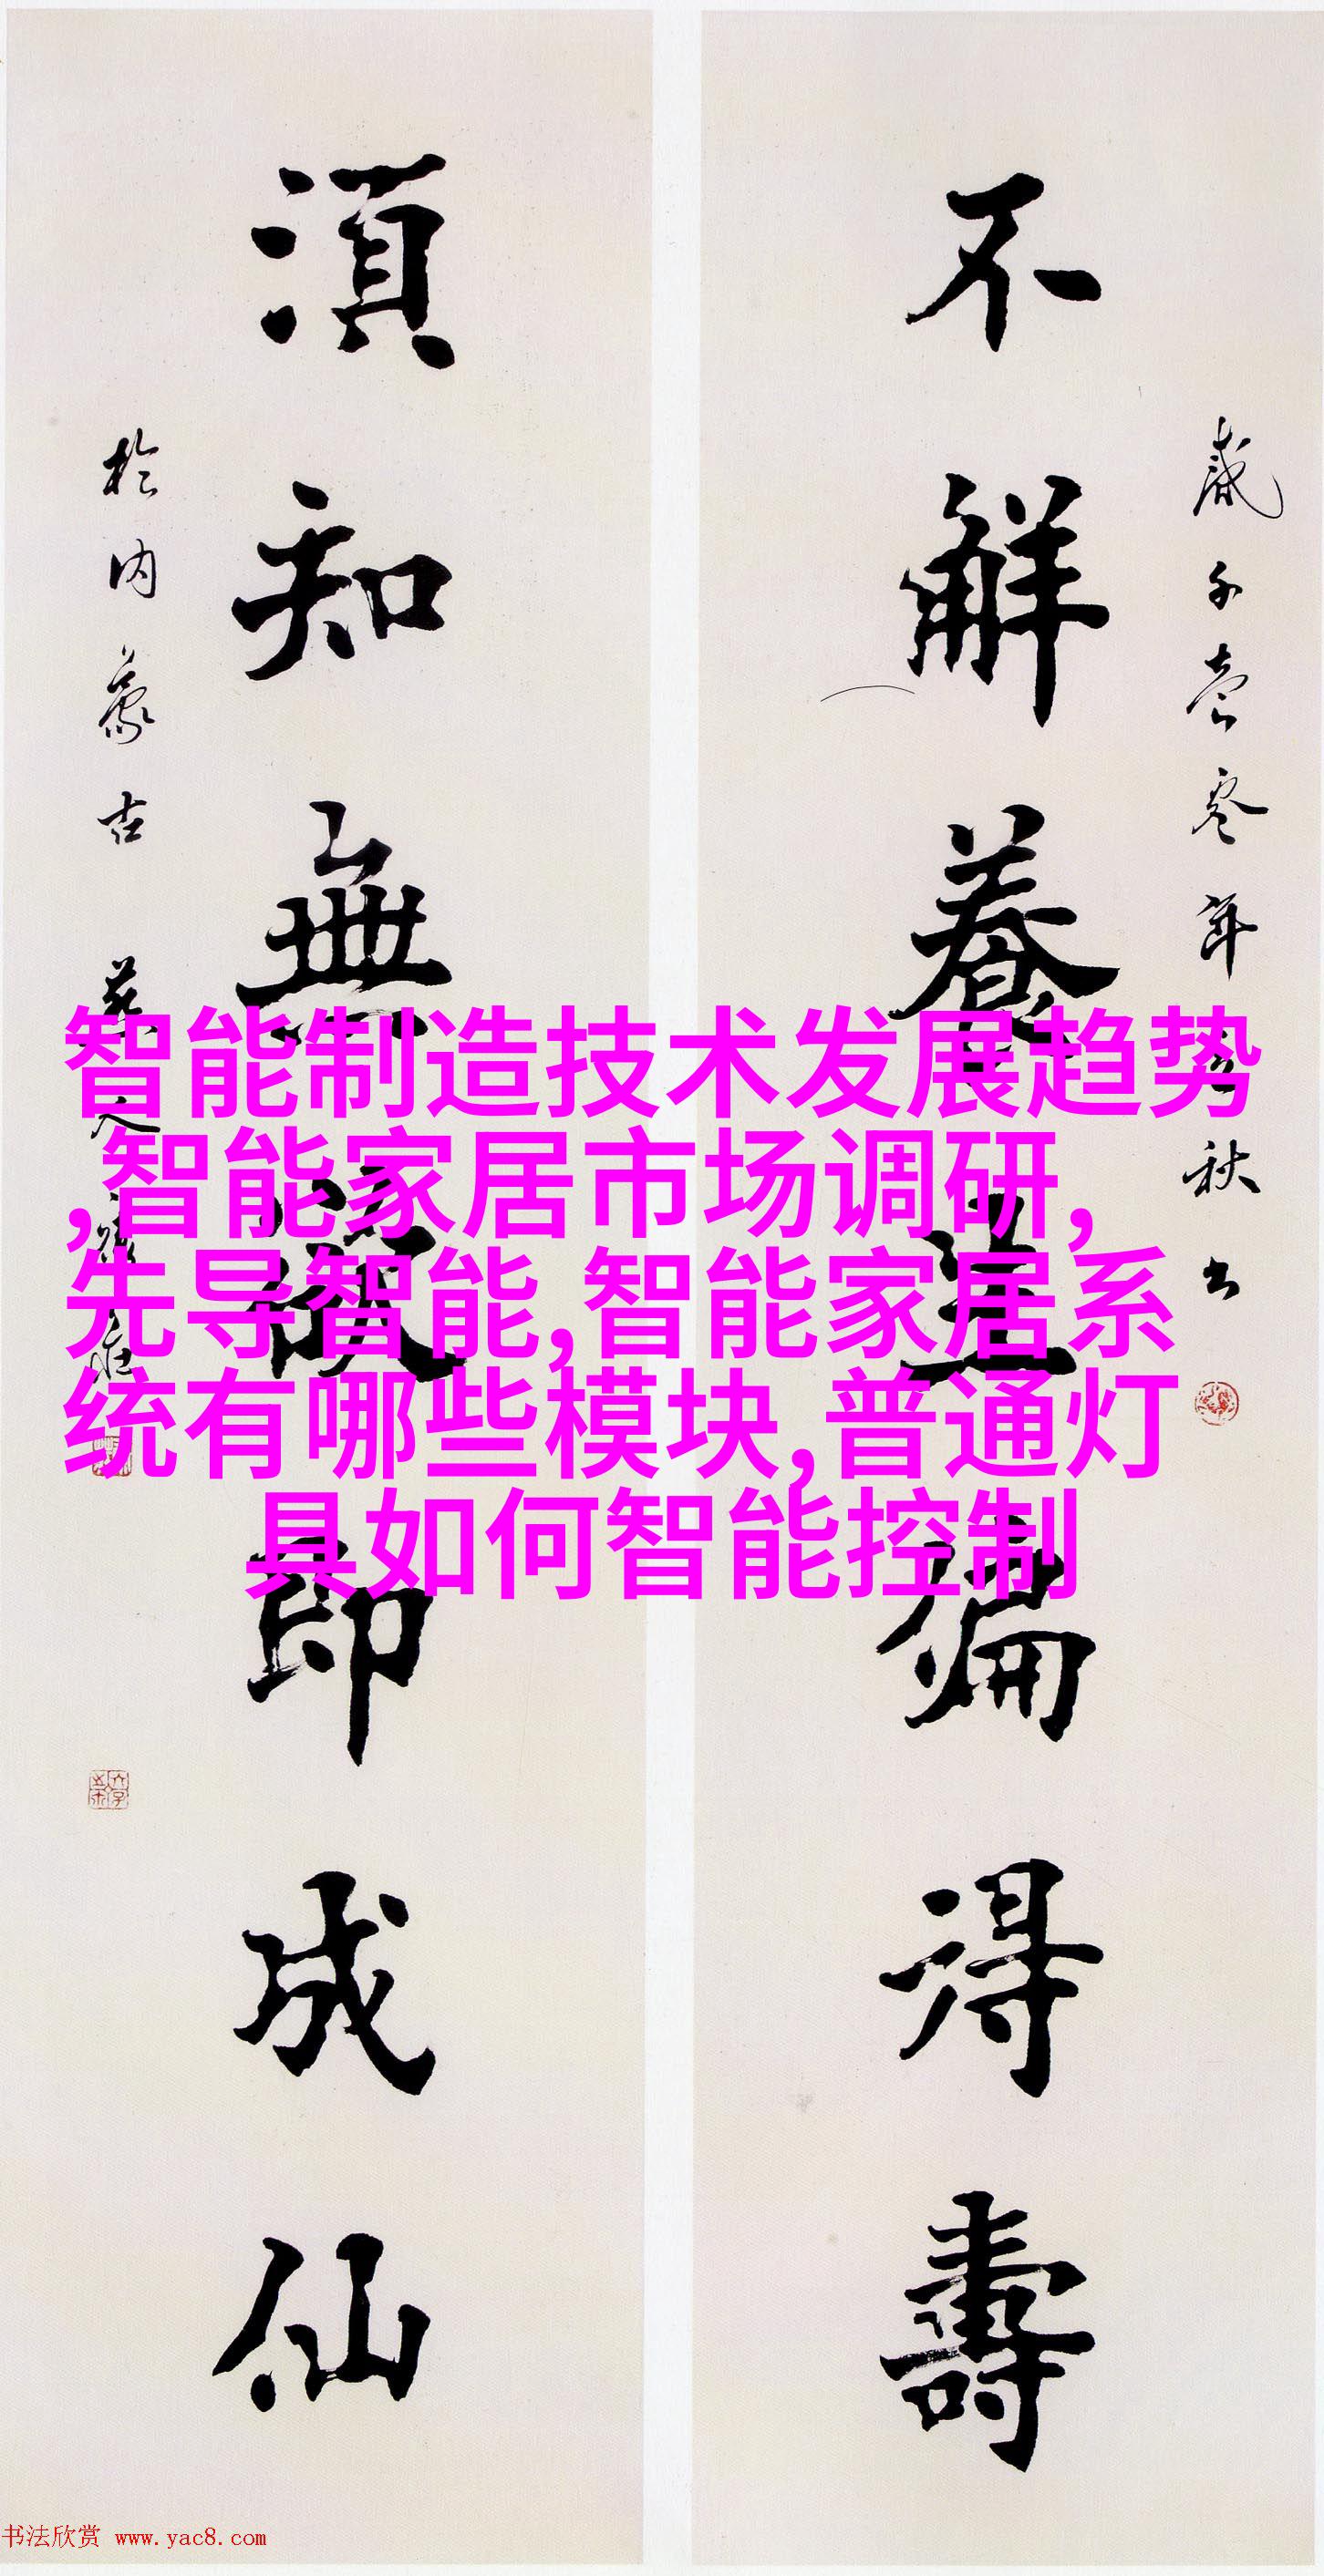 不解養生偏得壽
須知無欲即成仙
歲在壹零年
秋书
於内蒙古
智能制造技术发展趋势
,智能家居市场调研,
先导智能,智能家居系
统有哪些模块,普通灯
具如何智能控制
书法欣赏 www.yac8.com